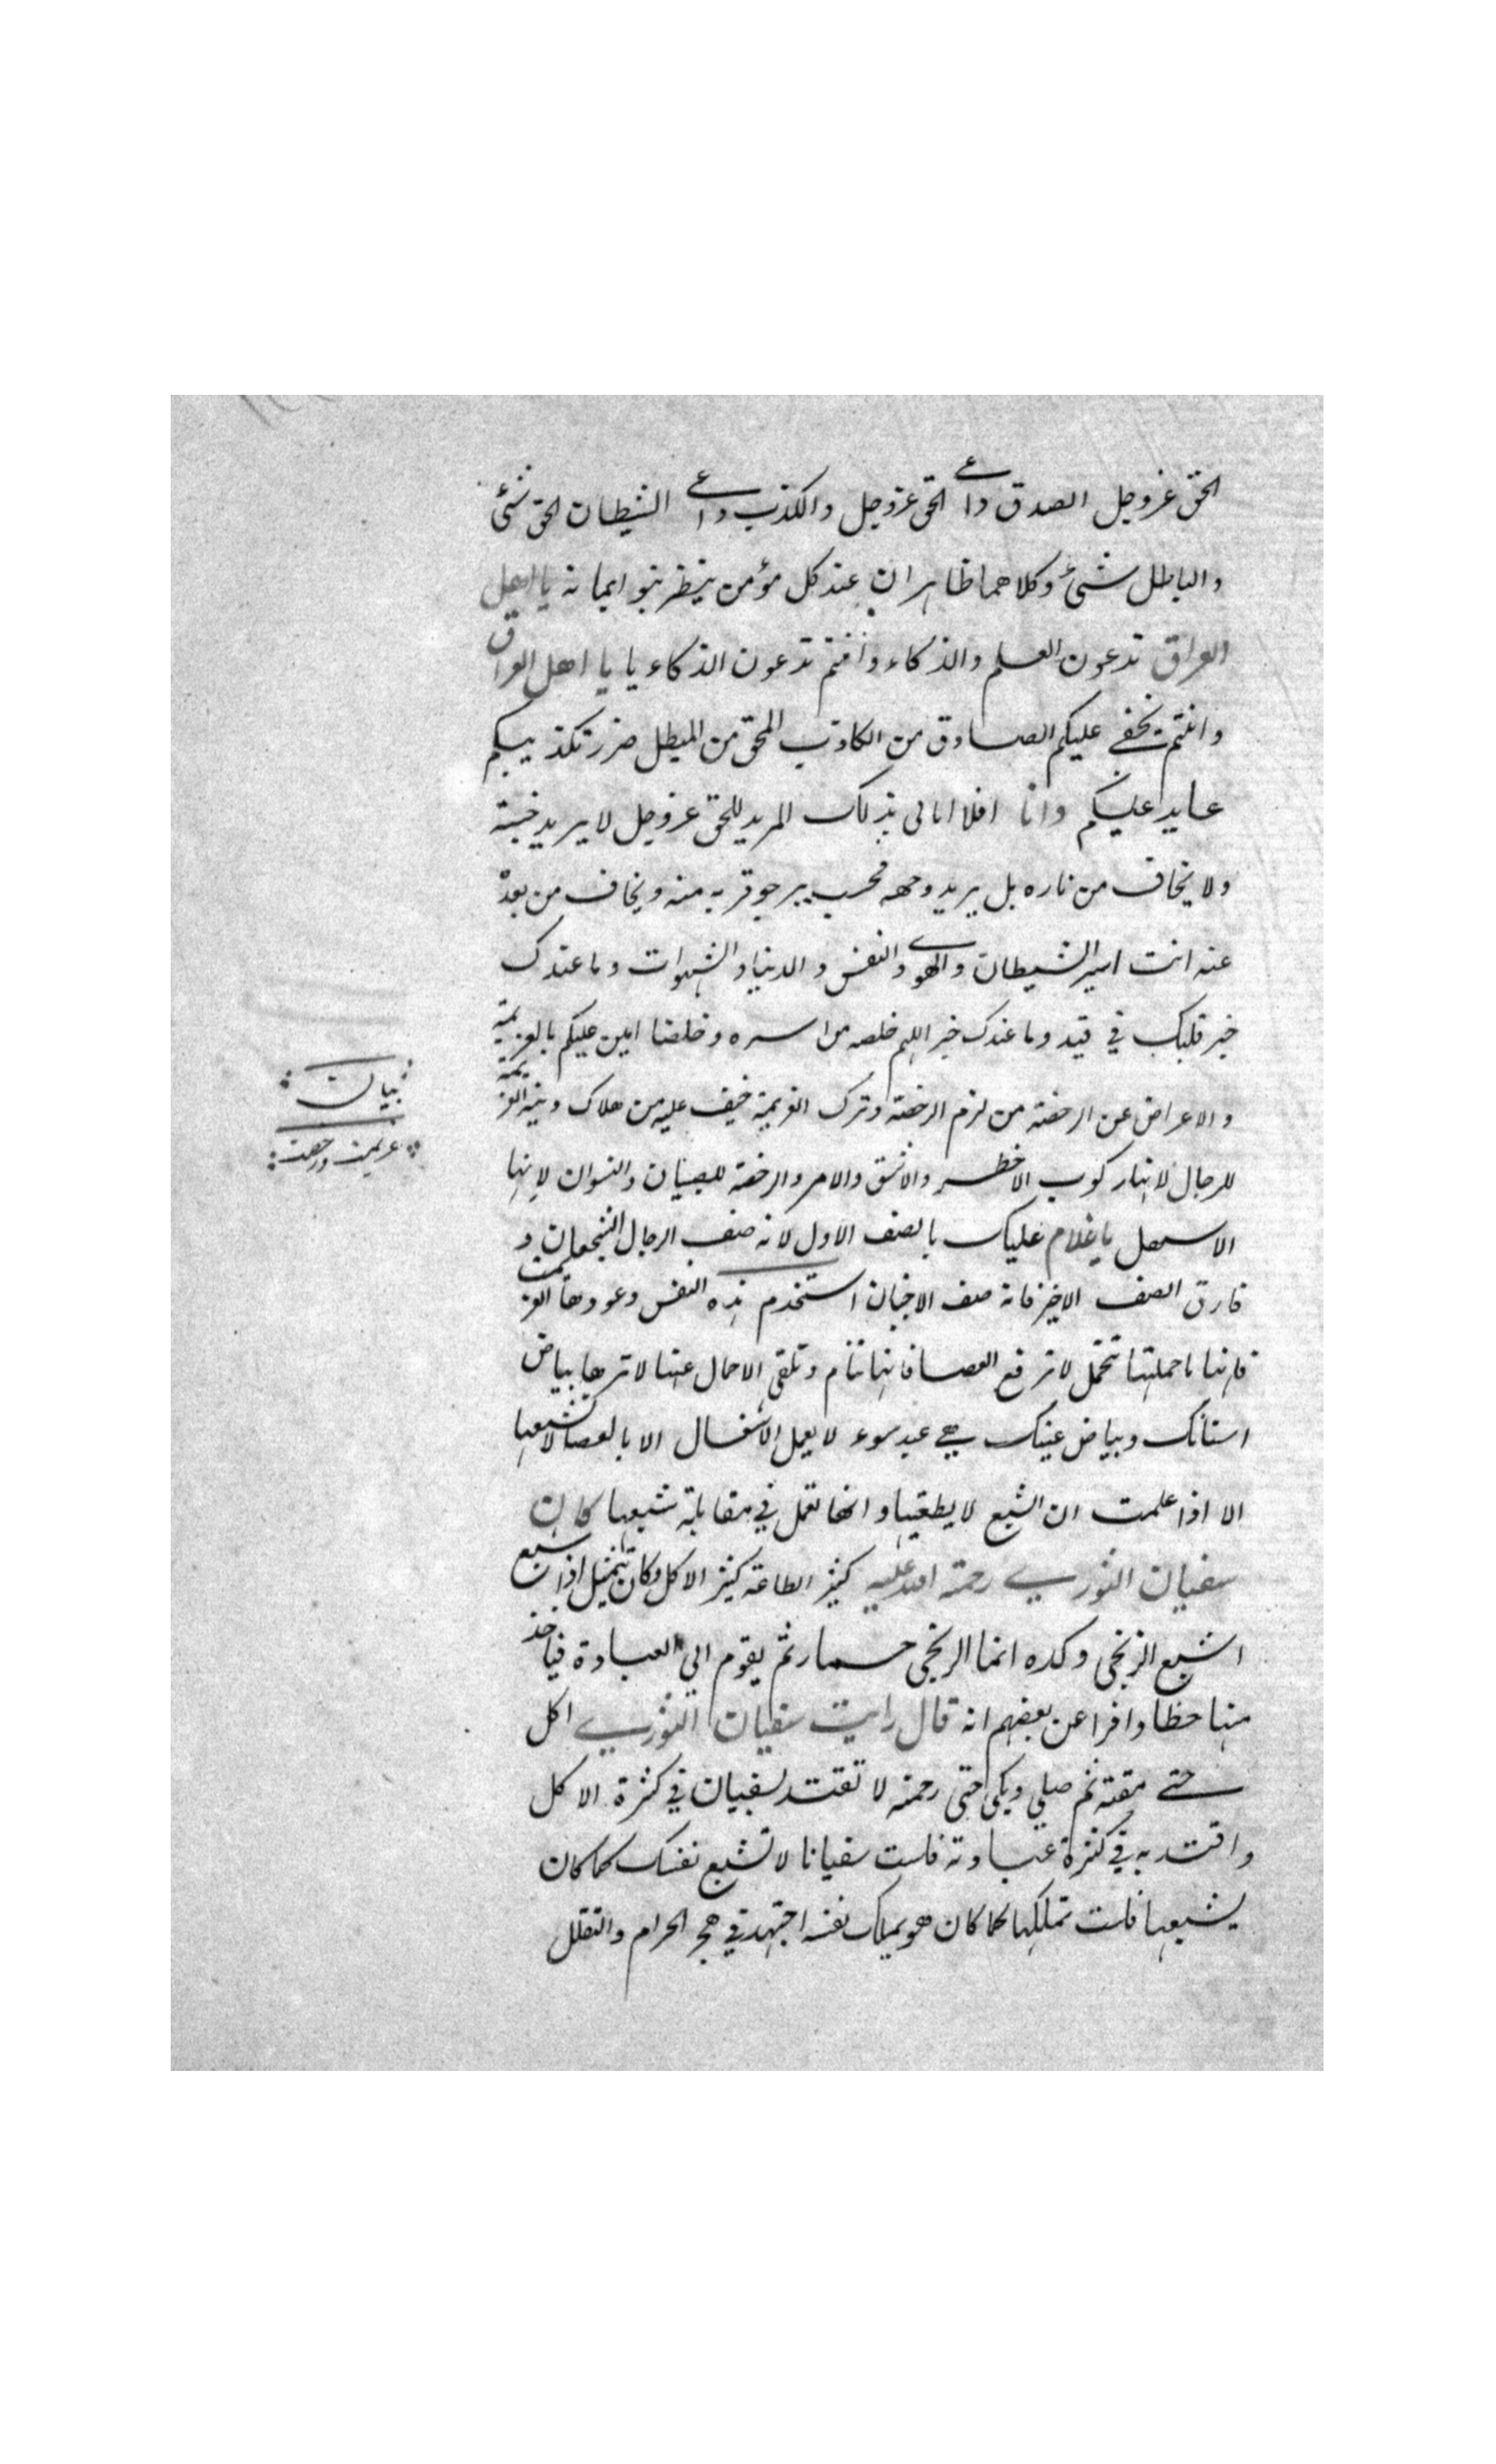 الحق عزوجل الصدق داعي الحق عزوجل والكذب داعي الشيطان الحق شئ
والباطل شئ وكلاهما ظاهران عند كل مؤمن ينظر بنو ايمانه يا اهل
العراق تدعون العلم والذكاء وانتم تدعون الذكاء يا يا اهل العراق
وانتم يخفى عليكم الصادق من الكاذب المحق من المبطل ضرر تكذيبكم
عايد عليكم وانا افلا ابالى بذلك المريد للحق عزوجل لا يريد جنته
ولا يخاف من ناره بل يريد وجهه فحسب يرجو قربه منه ويخاف من بعده
عنه انت اسير الشيطان والهوى والنفس والدنيا والشهوات وما عندك
خبر قلبك في قيد وما عندك خبر اللهم خلصه من اسره وخلصنا امين عليكم بالعزيمة
والاعراض عن الرخصة من لزم الرخصة وترك العزيمة خيف عليه من هلاك دينه العزيمة
للرجال لانها ركوب الاخطر والاشق والامر والرخصة للصبيان والنسوان لانها
الاسهل يا غلام عليك بالصف الاول لانه صف الرجال الشجعان و
فارق الصف الاخير فانه صف الاجبان استخدم هذه النفس وعودها العزيمت
فانها ما حملتها تتحمل لا ترفع العصا فانها تنام وتلقى الاحمال عنها لا ترها بياض
اسنانك وبياض عينك هي عبد سوء لا يعمل الاشغال الا بالعصا لا تشبعها
الا اذا علمت ان الشبع لا يطغيها وانها تعمل في مقابلة شبعها كان
سفيان الثوري رحمة الله عليه كثير الطاعة كثير الاكل وكان يتمثل اذا شبع
اشبع الزنجى وكده انما الزنجى حمار ثم يقوم الى العبادة فياخذ
منها حظا وافرا عن بعضهم انه قال رايت سفيان الثوري اكل
حتى مقته ثم صلى وبكى حتى رحمته لا تقتد لسفيان في كثرة الاكل
واقتد به في كثرة عبادته فلست سفيانا لا تشبع نفسك كما كان
يشبعها فلست تملكها كما كان هو يملك نفسه اجتهد في هجر الحرام والتقلل
بيان
عزيمت ورخصت